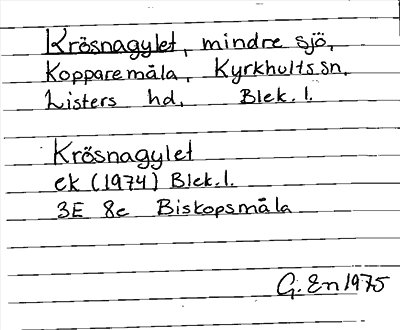 Krösnagylet, mindre sjö,
Kopparemåla, Kyrkhults sn.
Listers hd, Blek. l.
Krösnagylet
ek (1974) Blek. l.
3E 8c Biskopsmåla
G. En 1975